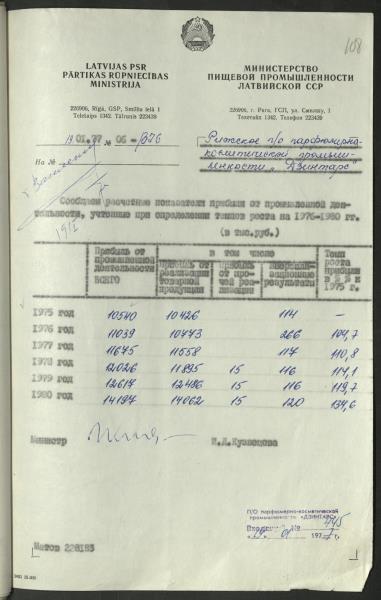 108
LATVIJAS PSR
PĀRTIKAS RŪPNIECĪBAS
MINISTRIJA
226906, Rīgā, GSP, Smilšu ielā 1
Teletaips 1342. Tālrunis 223439
МИНИСТЕРСТВО
ПИЩЕВОЙ ПРОМЫШЛЕННОСТИ
ЛАТВИЙСКОЙ ССР
226906, г. Рига, ГСП, ул. Смилшу, 1
Телетайп 1342. Телефон 223439
19.01.77 № 06-
На №
Рижское п/о парфюмерно-
косметической промыш-
ленности "Дзинтарс"
Сообщаем расчетные показатели прибыли от промышленной дея-
тельности, учтенные при определении темпов роста на 1976-1980 гг.
(в тыс.руб.)
Прибыль от промышленной деятельности ВСЕГО
в том числе
прибыль от реализации товарной продукции
прибыль от прочей реализации
результаты
Темп роста прибыли в % к 1975 г.
1975 год 10540 10426 114 —
1976 год 11039 10773 266 104,7
1977 год 11675 11558 117 110,8
1978 год 12026 11895 15 116 114,1
1979 год 12617 12486 15 116 119,7
1980 год 14197 14062 15 120 134,6
Министр
И.Д.Кузнецова
П/О парфюмерно-косметической
промышленности «ДЗИНТАРС»
Входящий № 445
01 1977 г.
Матов 228183